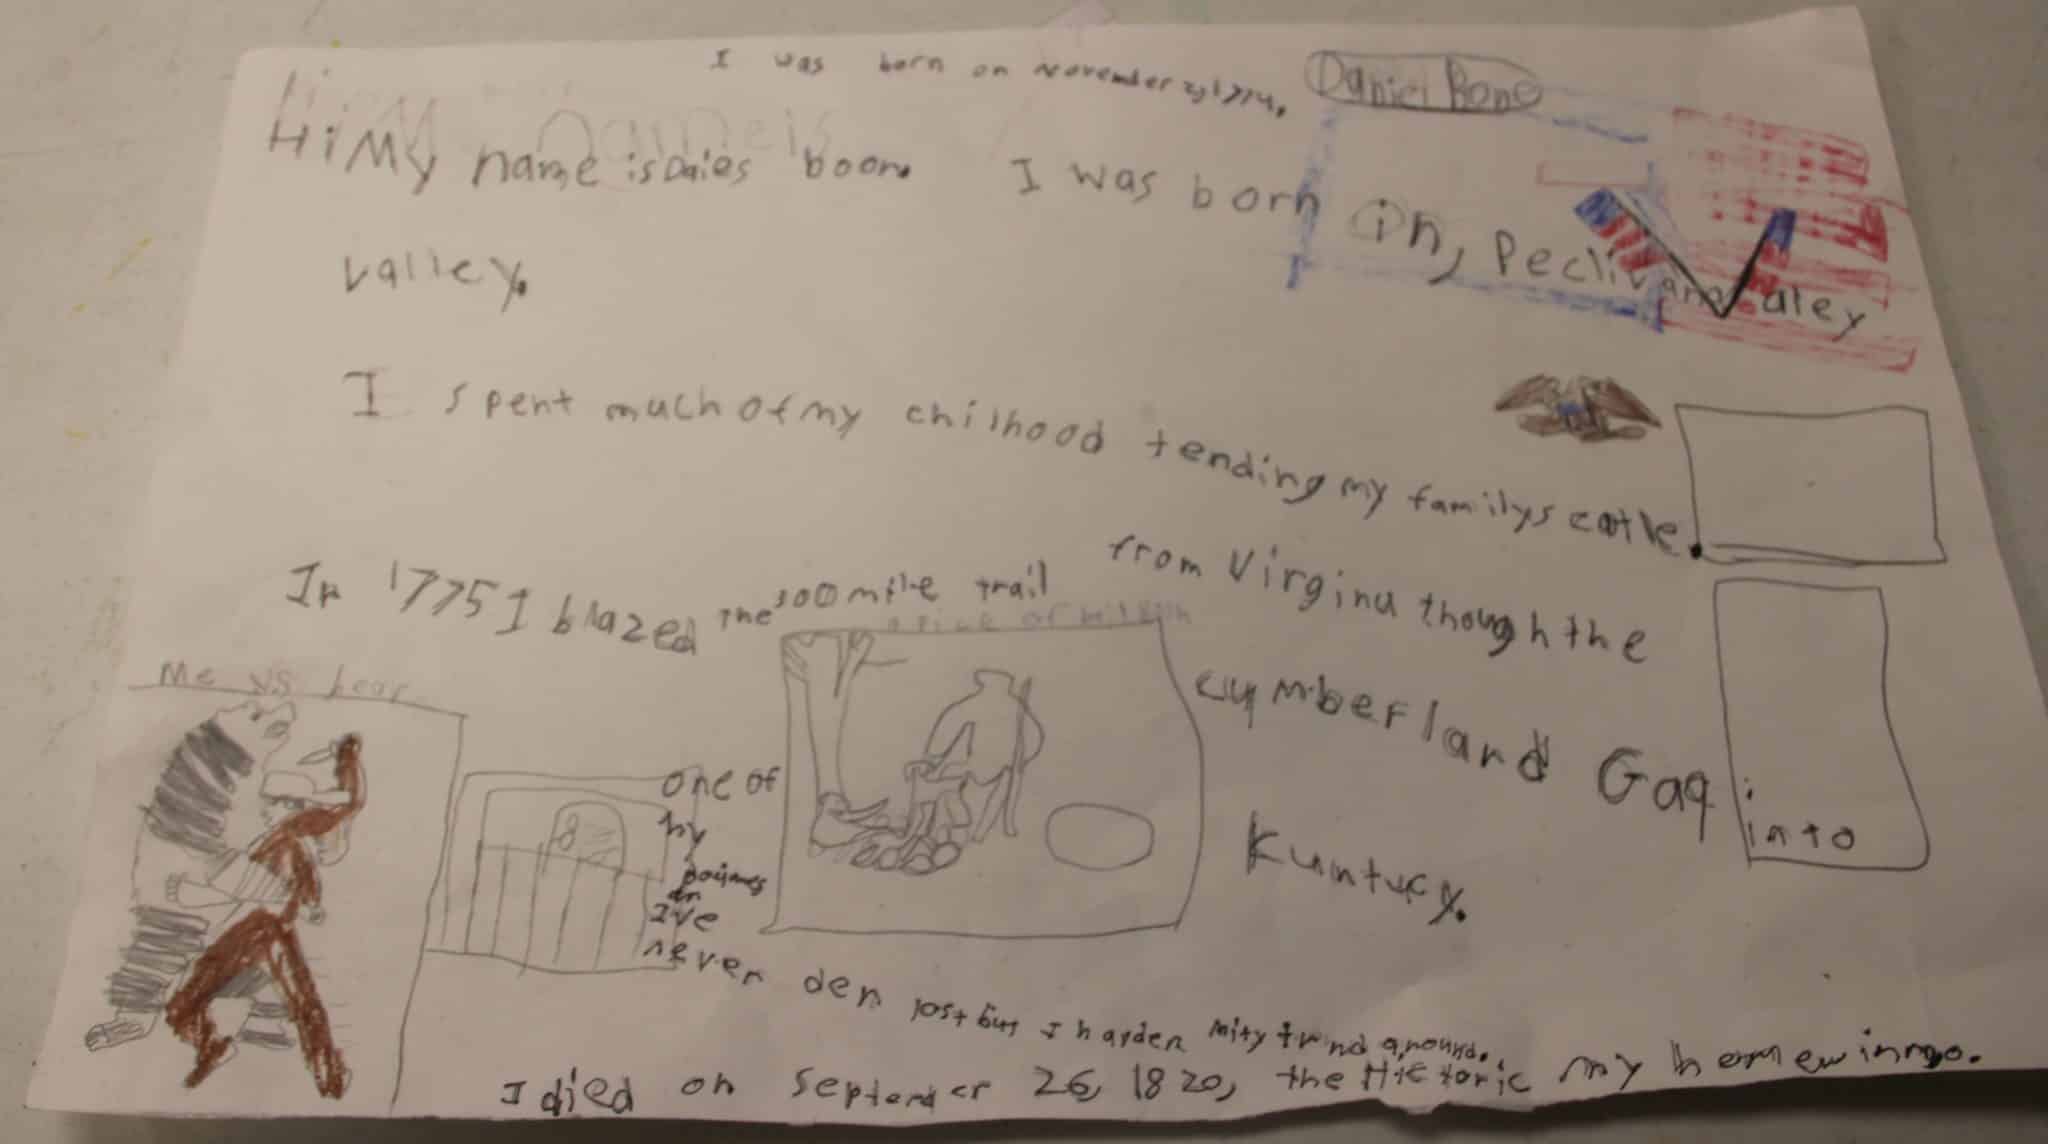 I was born on November
Daniel Bone
Hi My name is Daies boon. I was born in,
valley.
I spent much of my chilhood tending my familys catle.
In 1775 I blazed the 300 mile trail from Virginu though the
cumberland Gap into
Kuntucy.
Me vs bear
one of
my
I've
never den lost but I harden mity turnd around.
I died on September 26, 1820, the Hictoric my